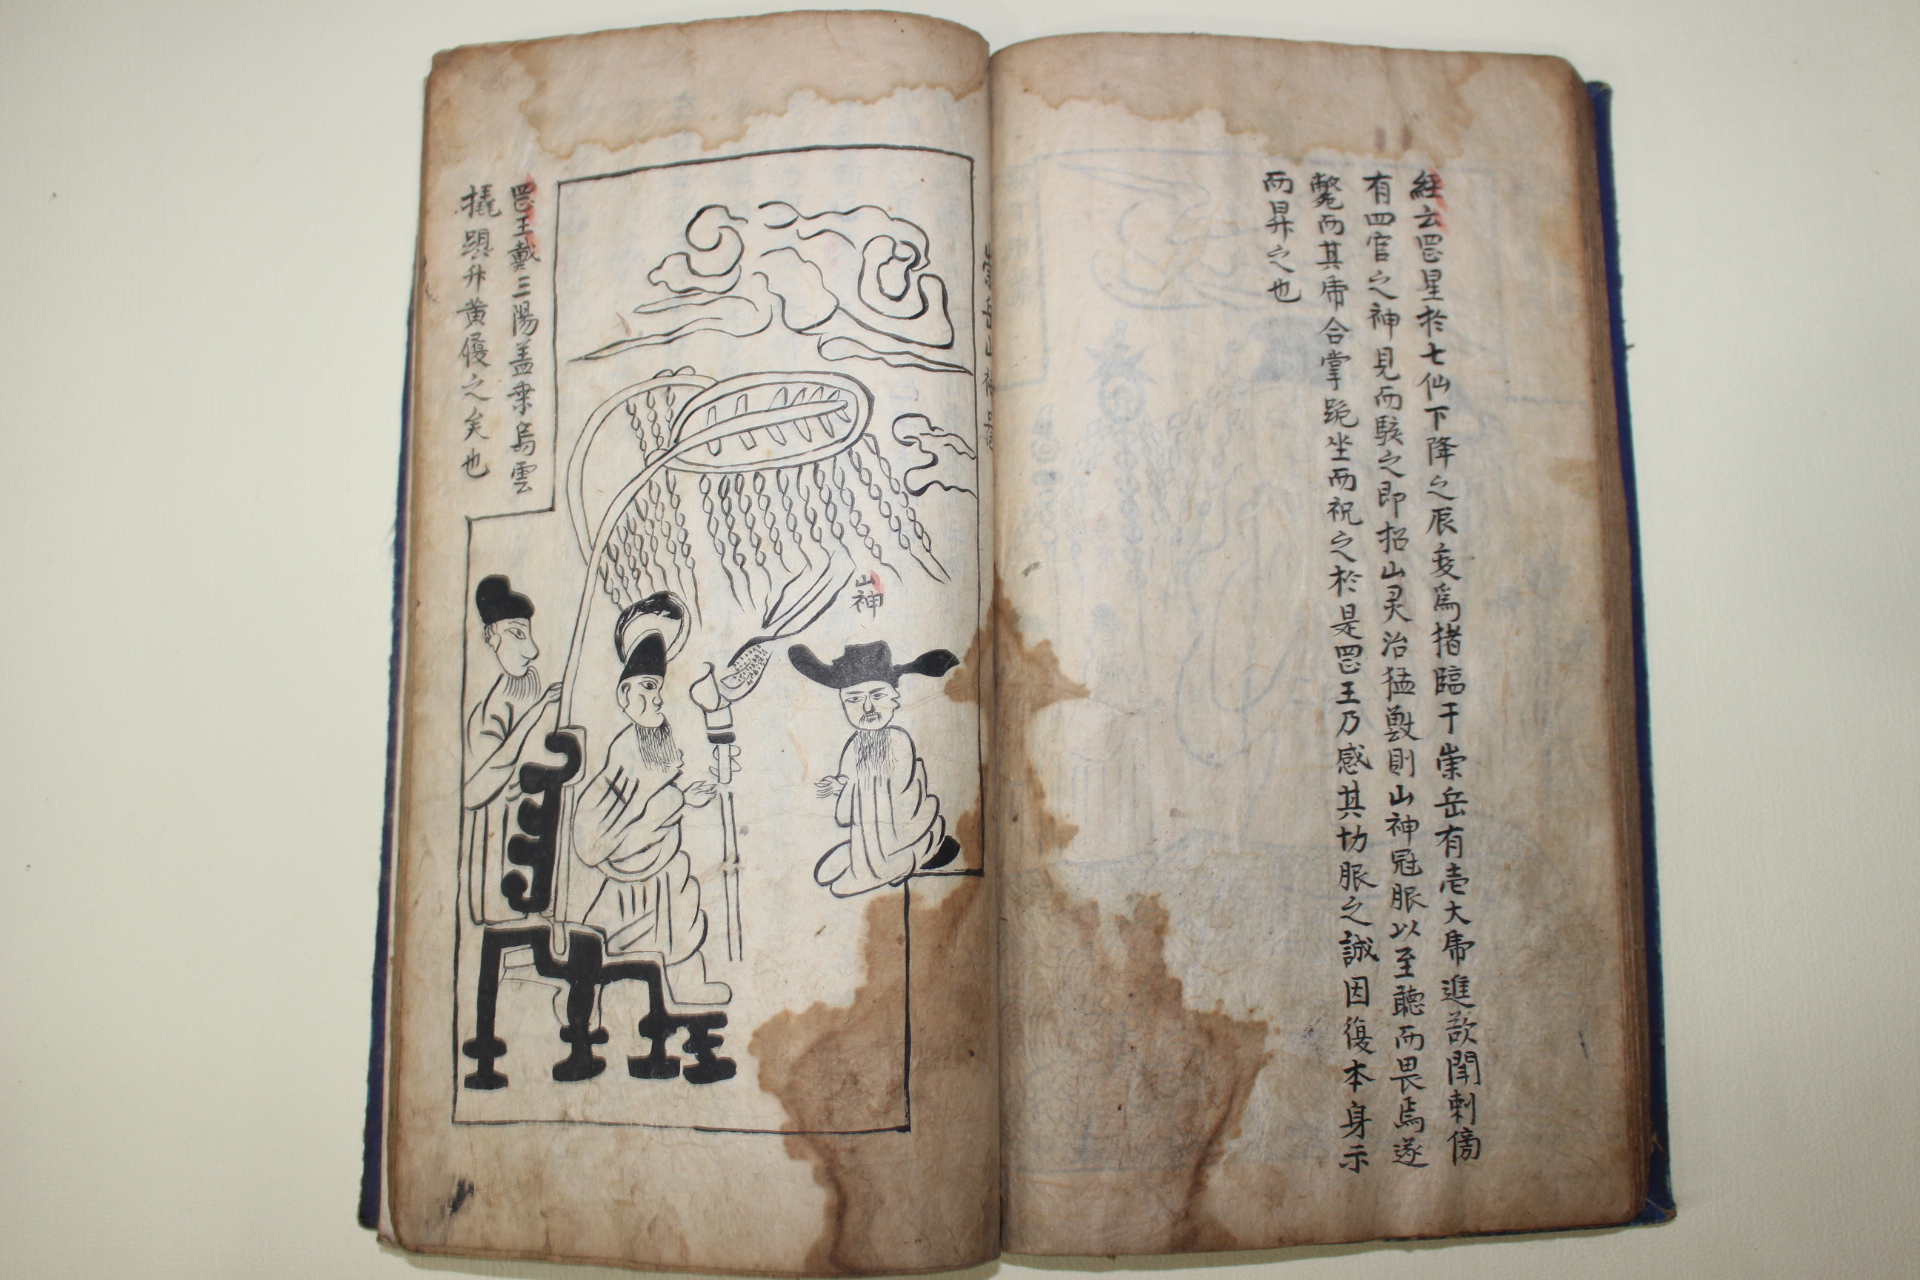 經云罡星於七仙下降之辰変爲猪臨于崇岳有壱大帍進欲閗刺傍
有四官之神見而駭之即招山灵治猛獸則山神冠服以至聽而畏焉遂
斃而其帍合掌跪坐而祝之於是罡王乃感其切服之誠因復本身示
而昇之也
崇岳山神
山神
罡王戴三陽盖乗烏雲
撬跟升黄優之矣也